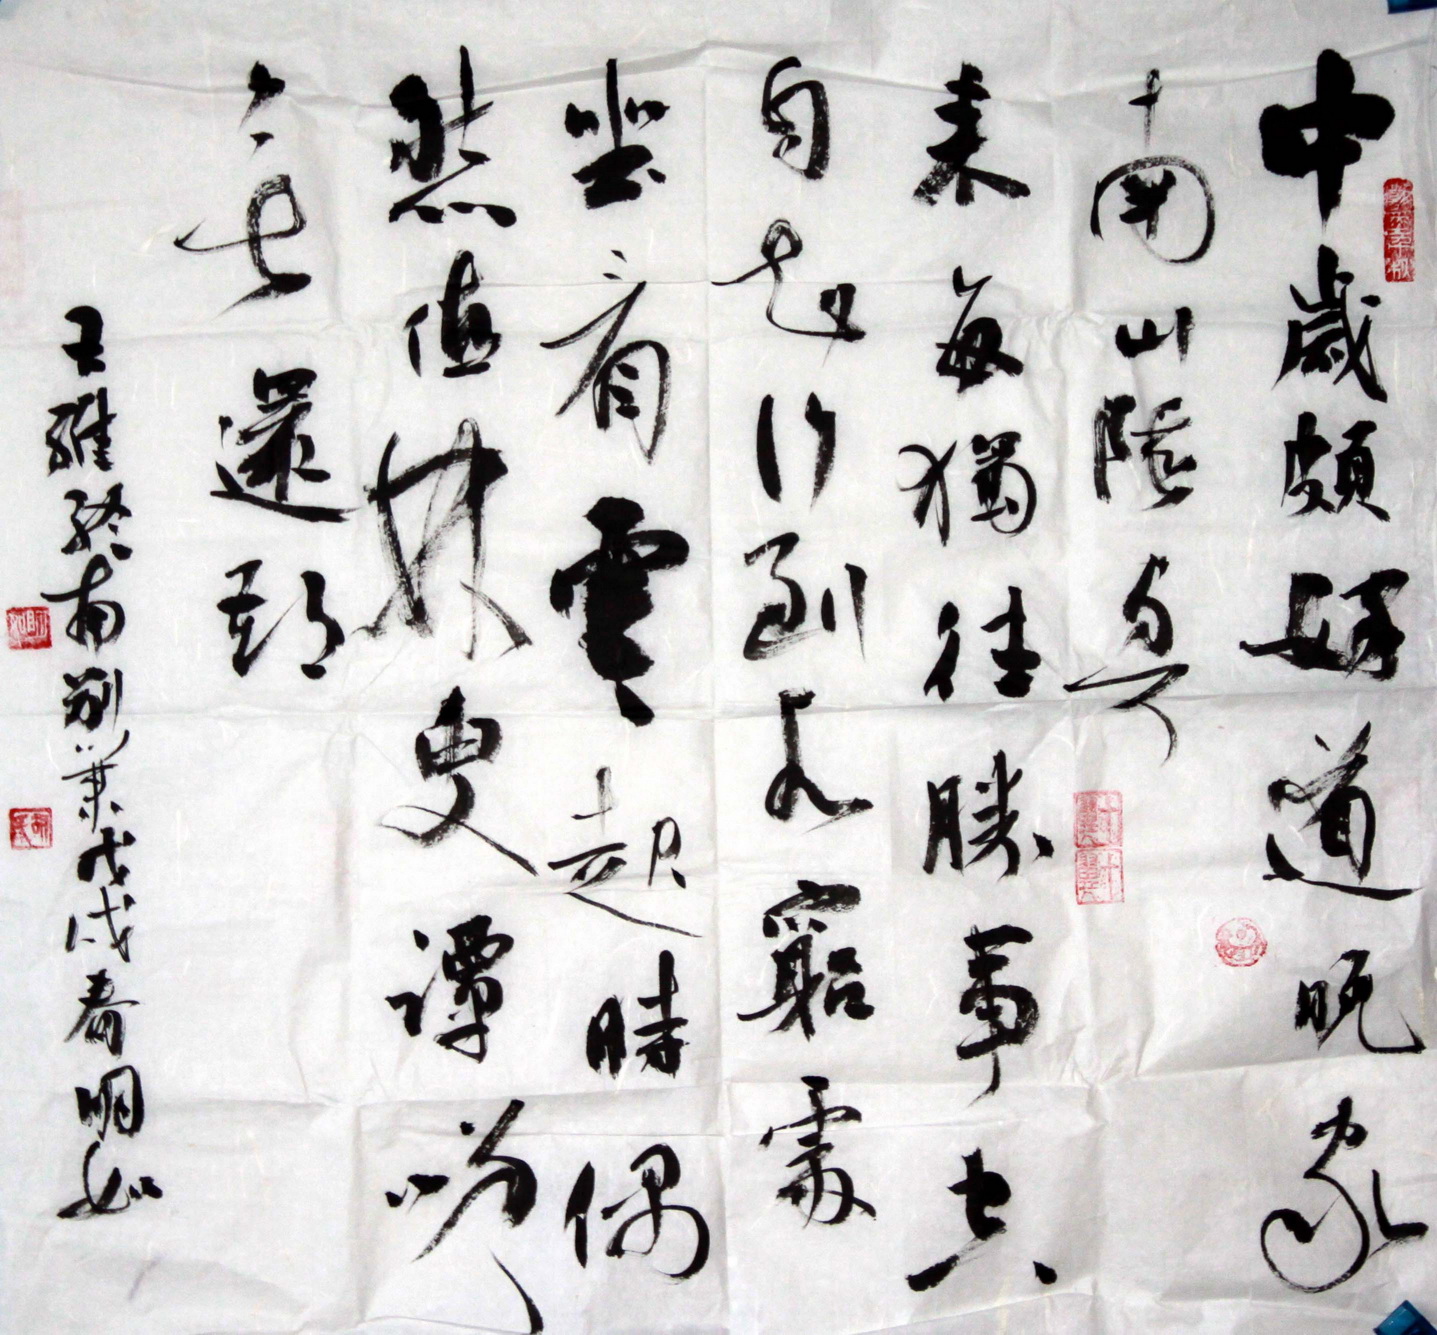 中歲頗好道晚家
南山陲興
来每獨往勝事空
自知行到水窮處
坐看雲起時偶
然值林叟譚咲
無還期
王維終南別業戊戌春明如